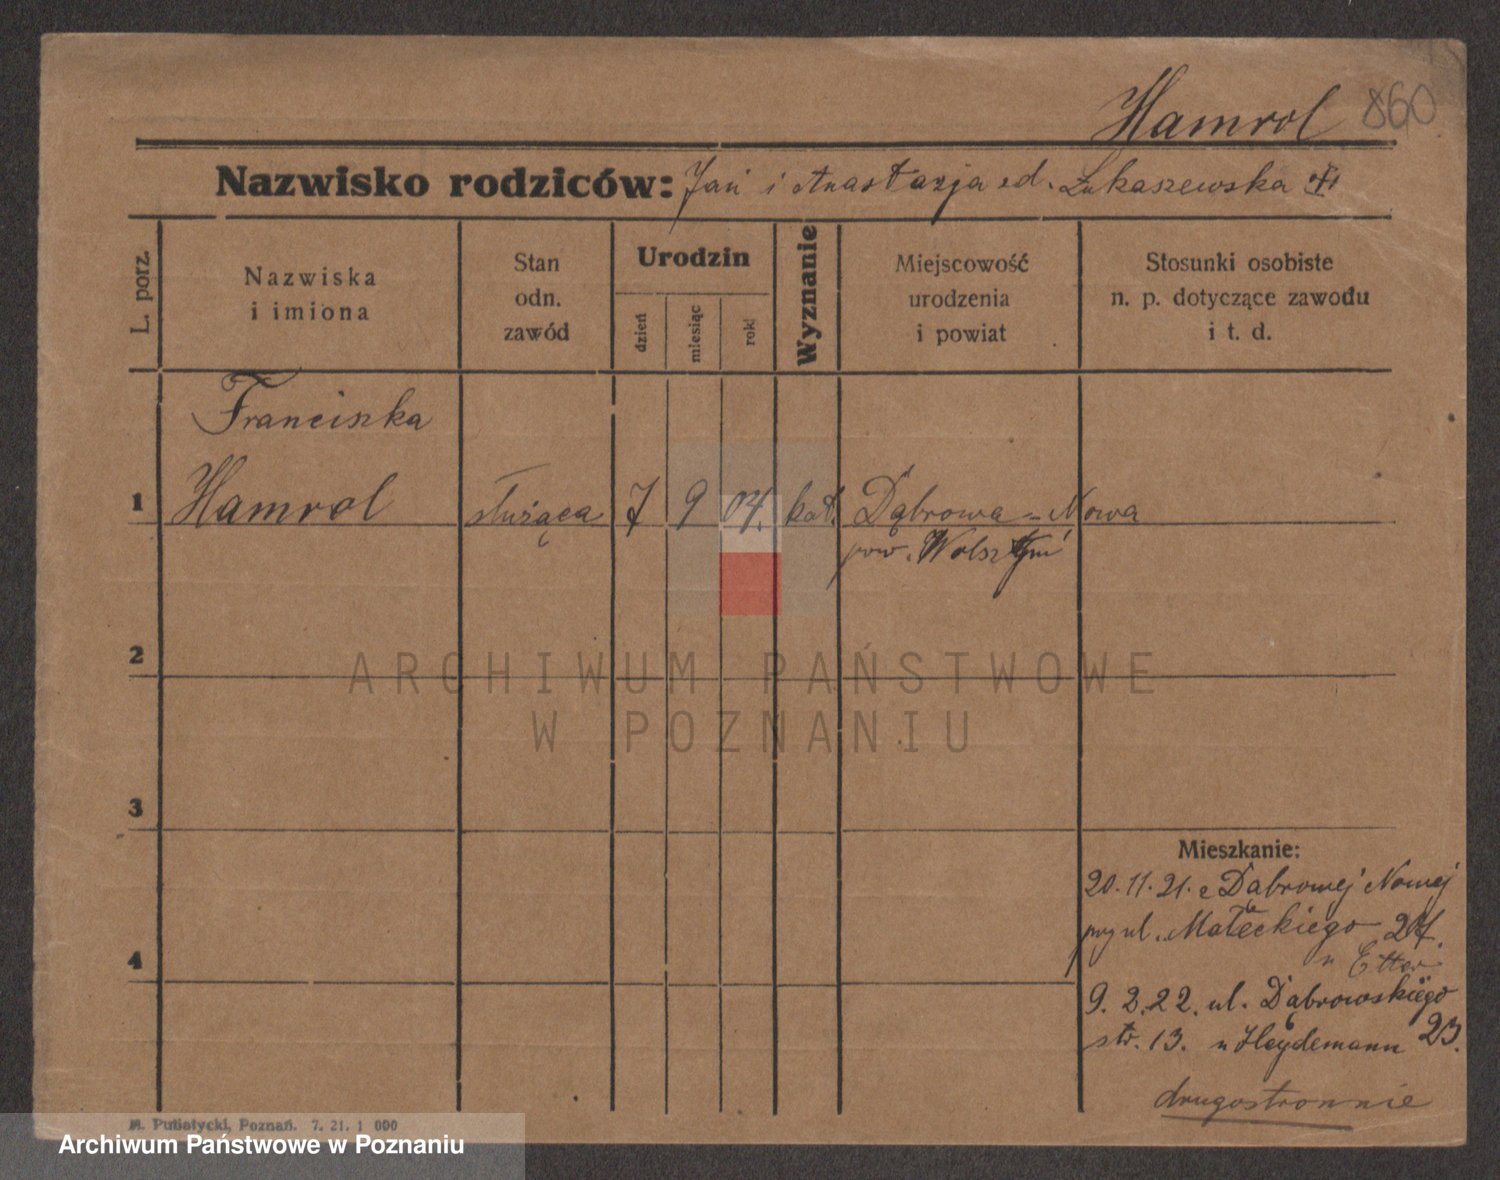 Hamrol 860
Nazwisko rodziców: Jan i Anastazja zd. Łukaszewska
L. porz.
Nazwiska
i imiona
Stan
odn.
zawód
Urodzin
dzień
miesiąc
rok
Wyznanie
Miejscowość
urodzenia
i powiat
Stosunki osobiste
n. p. dotyczące zawodu
i t. d.
Franciszka
1 Hamrol służąca 7 9 04. kat. Dąbrowa-Nowa
pow. Wolsztyn
2
ARCHIWUM PAŃSTWOWE
W POZNANIU
3
Mieszkanie:
20.11.21. z Dąbrowej Nowej
przy ul. Małeckiego
4
9.2.22. ul. Dąbrowskiego
str. 13. u Heydemann 23.
drugostronnie
M. Putiatycki, Poznań. 7. 21. 1 000
Archiwum Państwowe w Poznaniu